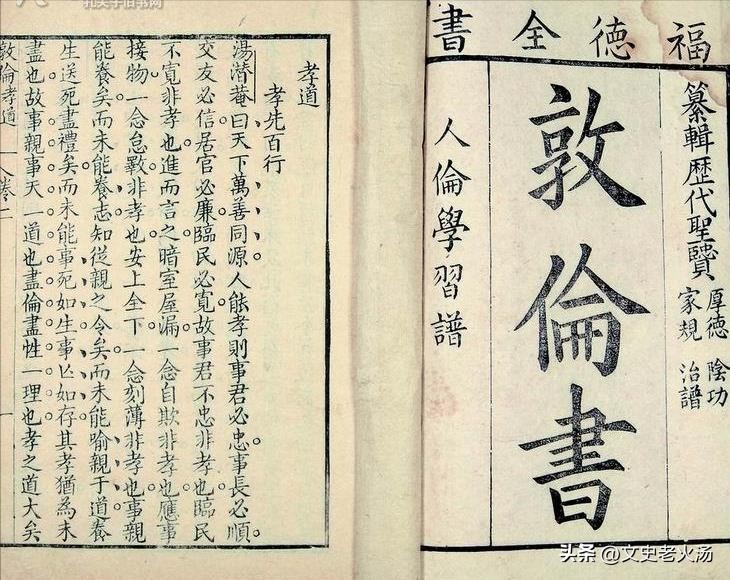 福德全書
纂輯歴代聖賢
厚德 陰功
家規 治譜
敦倫書
人倫學習譜
孝道
孝先百行
湯潛菴曰天下萬善同源人能孝則事君必忠事長必順
交友必信居官必廉臨民必寬故事君不忠非孝也臨民
不寬非孝也進而言之暗室屋漏一念自欺非孝也應事
接物一念怠斁非孝也安上全下一念刻薄非孝也事親
能養矣而未能養志知從親之令矣而未能喻親于道養
生送死盡禮矣而未能事死如生事亾如存其孝猶為未
盡也故事親事天一道也盡倫盡性一理也孝之道大矣
敦倫孝道 卷二 一
头条 @文史老火汤